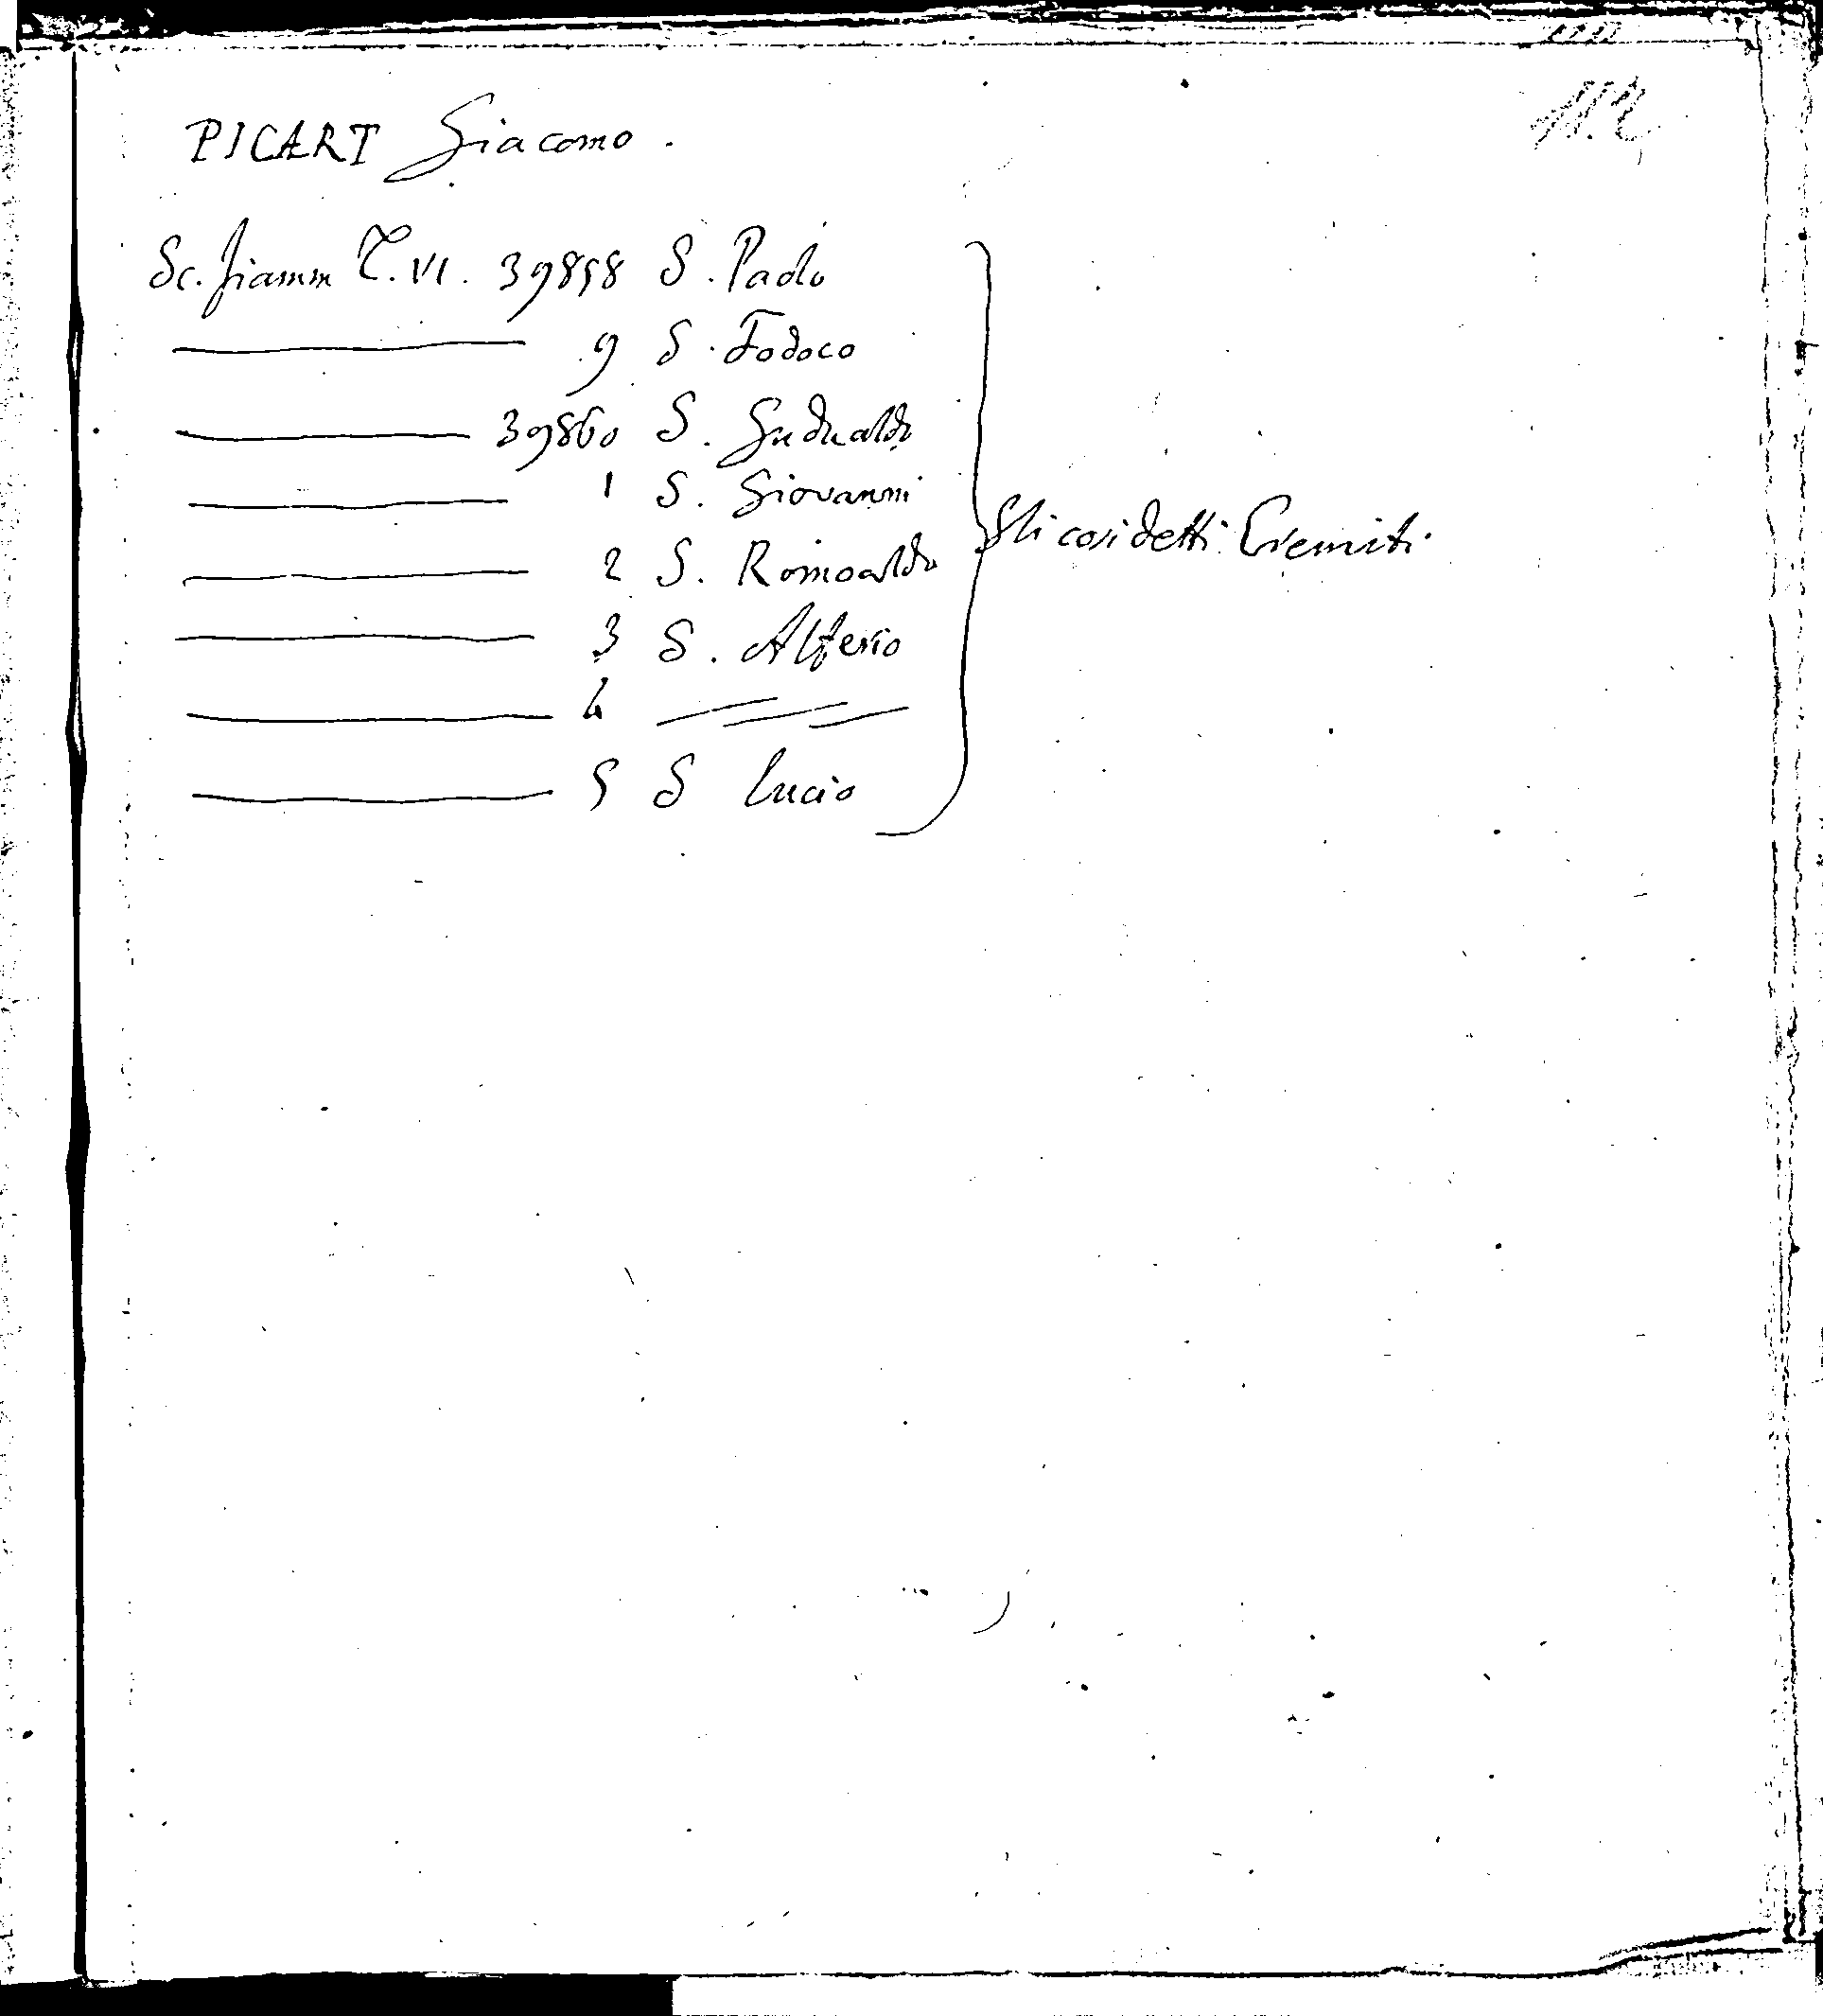 PICART Giacomo.
Sc. fiamm T. VI. 39858 S. Paolo
9 S. Jodoco
39860 S. Gudualdo
1 S. Giovanni
2 S. Romoaldo
Gli cosidetti Eremiti.
3 S. Alferio
4
5 S Lucio